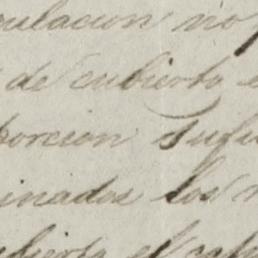 rulacion no
de cubierto
porcion sufi
inados los
ubierto el